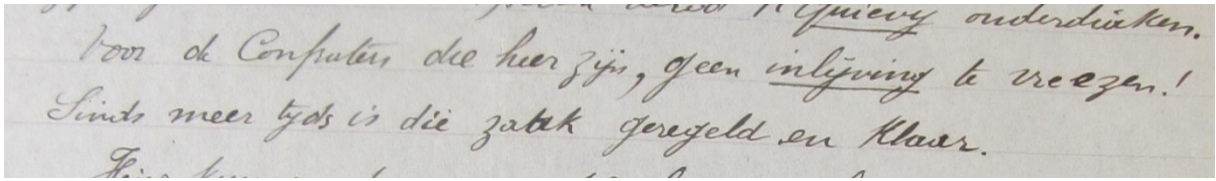 Quievy onderduiken.
Voor de Confraters die hier zijn, geen inlijving te vreezen!
Sinds meer tyds is die zaak geregeld en klaar.